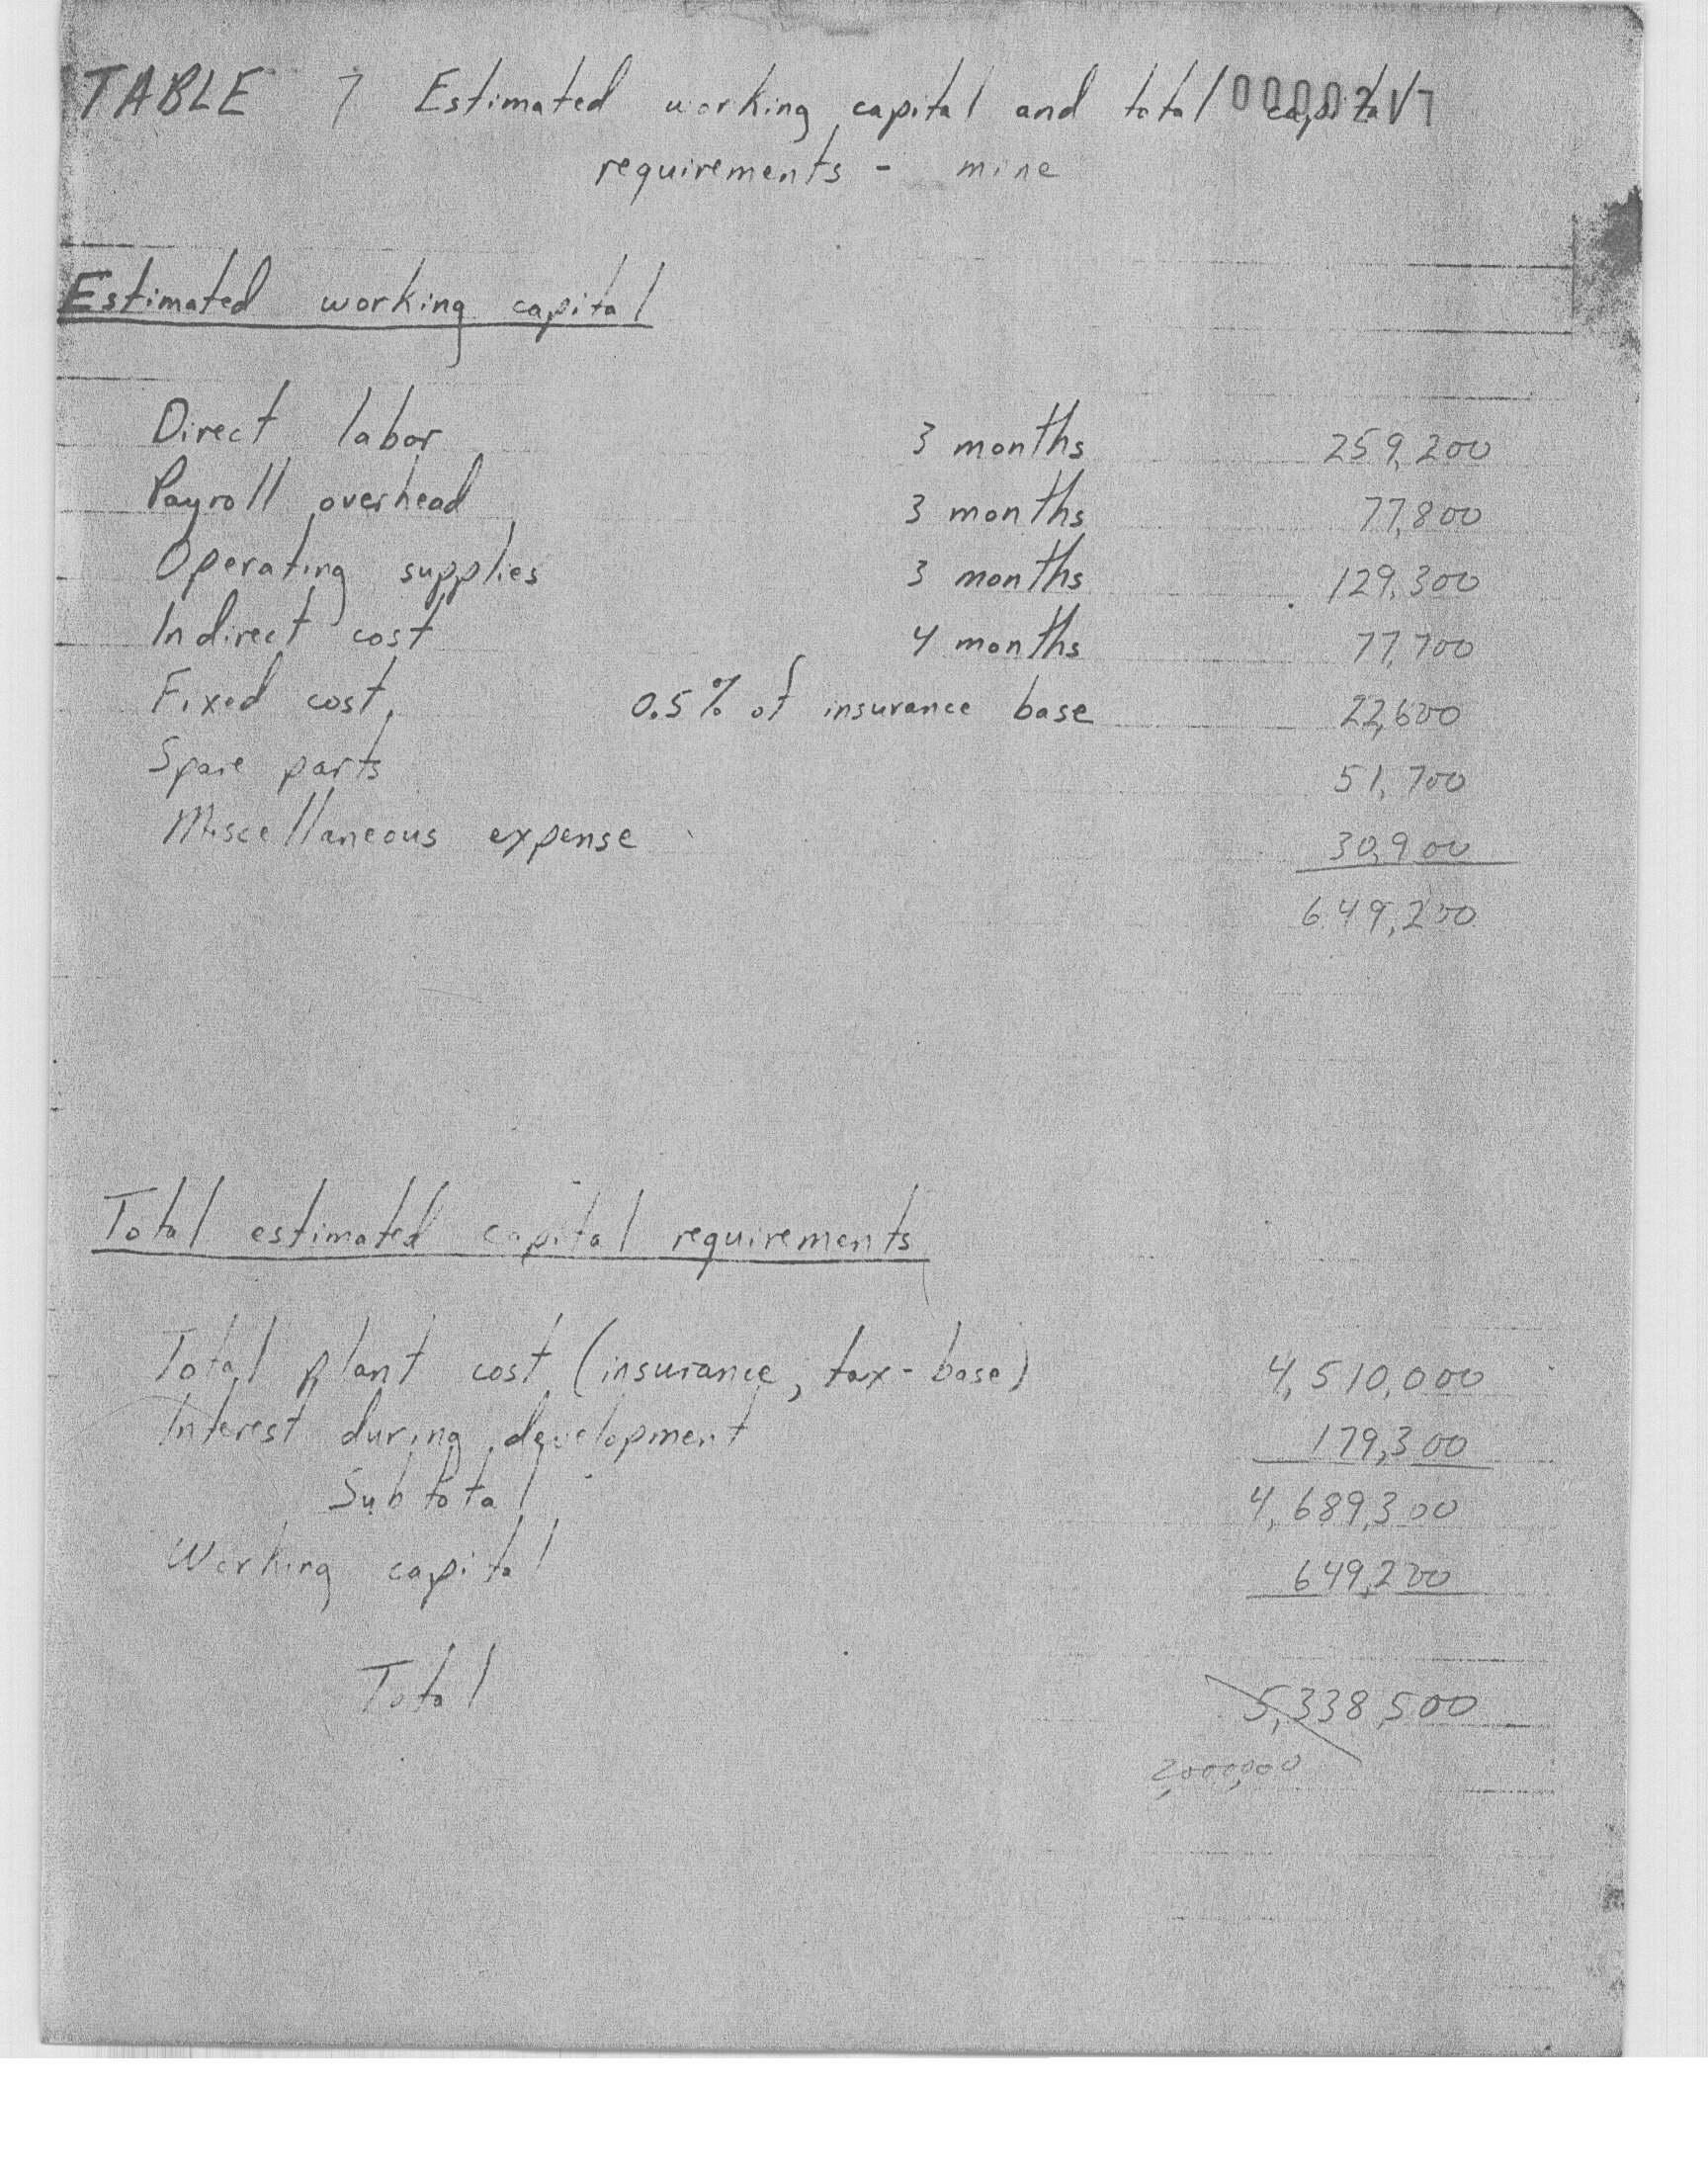 TABLE 7 Estimated working capital and total capital
requirements - mine
Estimated working capital
Direct labor 3 months 259,200
Payroll overhead 3 months 77,800
Operating supplies 3 months 129,300
Indirect cost 4 months 77,700
Fixed cost, 0.5% of insurance base 22,600
Spare parts 51,700
Miscellaneous expense 30,900
649,200
Total estimated capital requirements
Total plant cost (insurance, tax-base) 4,510,000
Interest during development 179,300
Subtotal 4,689,300
Working capital 649,200
Total 5,338,500
2,000,000